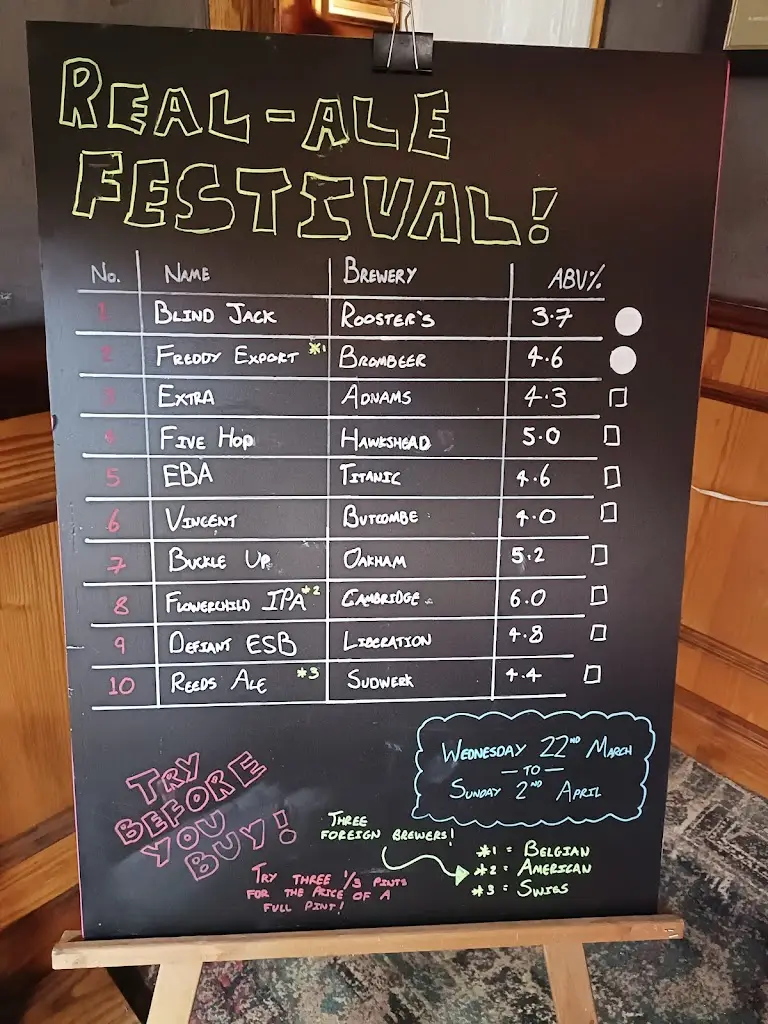 REAL-ALE
FESTIVAL!
No. NAME BREWERY ABV%
1 BLIND JACK ROOSTER'S 3.7
2 FREDDY EXPORT *1 BROMBEER 4.6
3 EXTRA ADNAMS 4.3
4 FIVE HOP HAWKSHEAD 5.0
5 EBA TITANIC 4.6
6 VINCENT BUTCOMBE 4.0
7 BUCKLE UP OAKHAM 5.2
8 FLOWERCHILD IPA *2 CAMBRIDGE 6.0
9 DEFIANT ESB LIBERATION 4.8
10 REEDS ALE *3 SUDWERK 4.4
WEDNESDAY 22ND MARCH
— TO —
SUNDAY 2ND APRIL
TRY
BEFORE
YOU
BUY!
TRY THREE 1/3 PINTS
FOR THE PRICE OF A
FULL PINT!
THREE
FOREIGN BREWERS!
*1 = BELGIAN
*2 = AMERICAN
*3 = SWISS